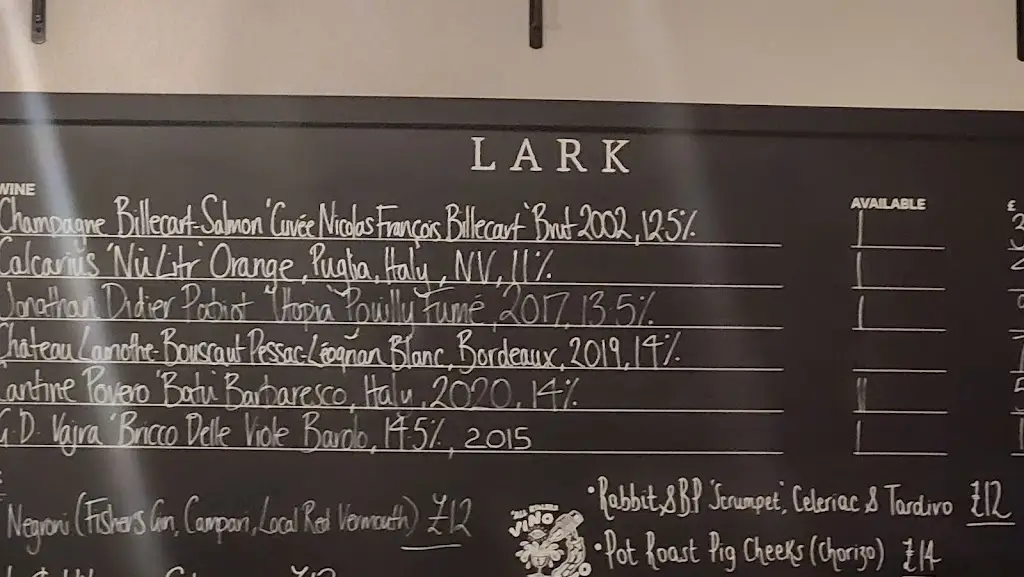 LARK
WINE AVAILABLE £
Champagne Billecart-Salmon 'Cuvée Nicolas François Billecart' Brut 2002, 12.5% |
Calcarius 'Nù Litr' Orange, Puglia, Italy, NV, 11% |
Jonathan Didier Pabiot 'Utopia' Pouilly Fumé, 2017, 13.5% |
Château Lamothe-Bouscaut Pessac-Léognan Blanc, Bordeaux, 2019, 14%
Cantine Povero 'Batù' Barbaresco, Italy, 2020, 14% ||
G.D. Vajra 'Bricco Delle Viole' Barolo, 14.5%, 2015 |
Negroni (Fishers Gin, Campari, Local Red Vermouth) £12
VINO
• Rabbit, & BP 'Scrumpet', Celeriac & Tardivo £12
• Pot Roast Pig Cheeks (Chorizo) £14